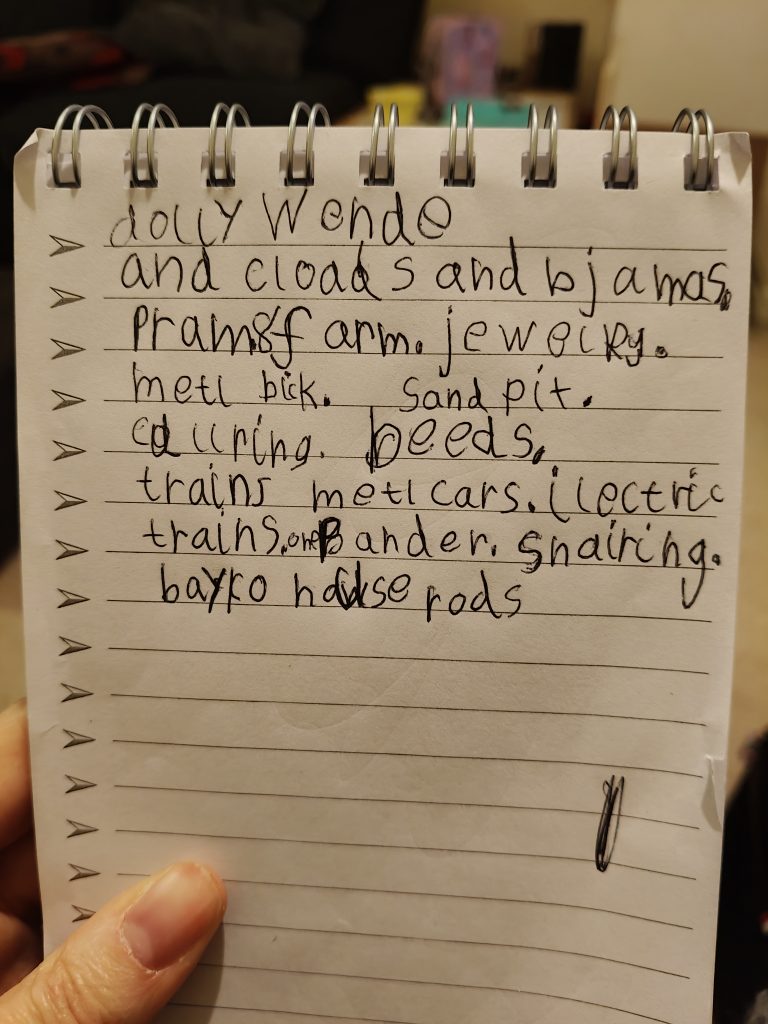 dolly Wende
and cloads and bjamas.
Pram & farm. jewelry.
metl bick. Sand pit.
culring. beeds.
trains metl cars. ilectric
trains. one Bander. snairing.
bayko house rods